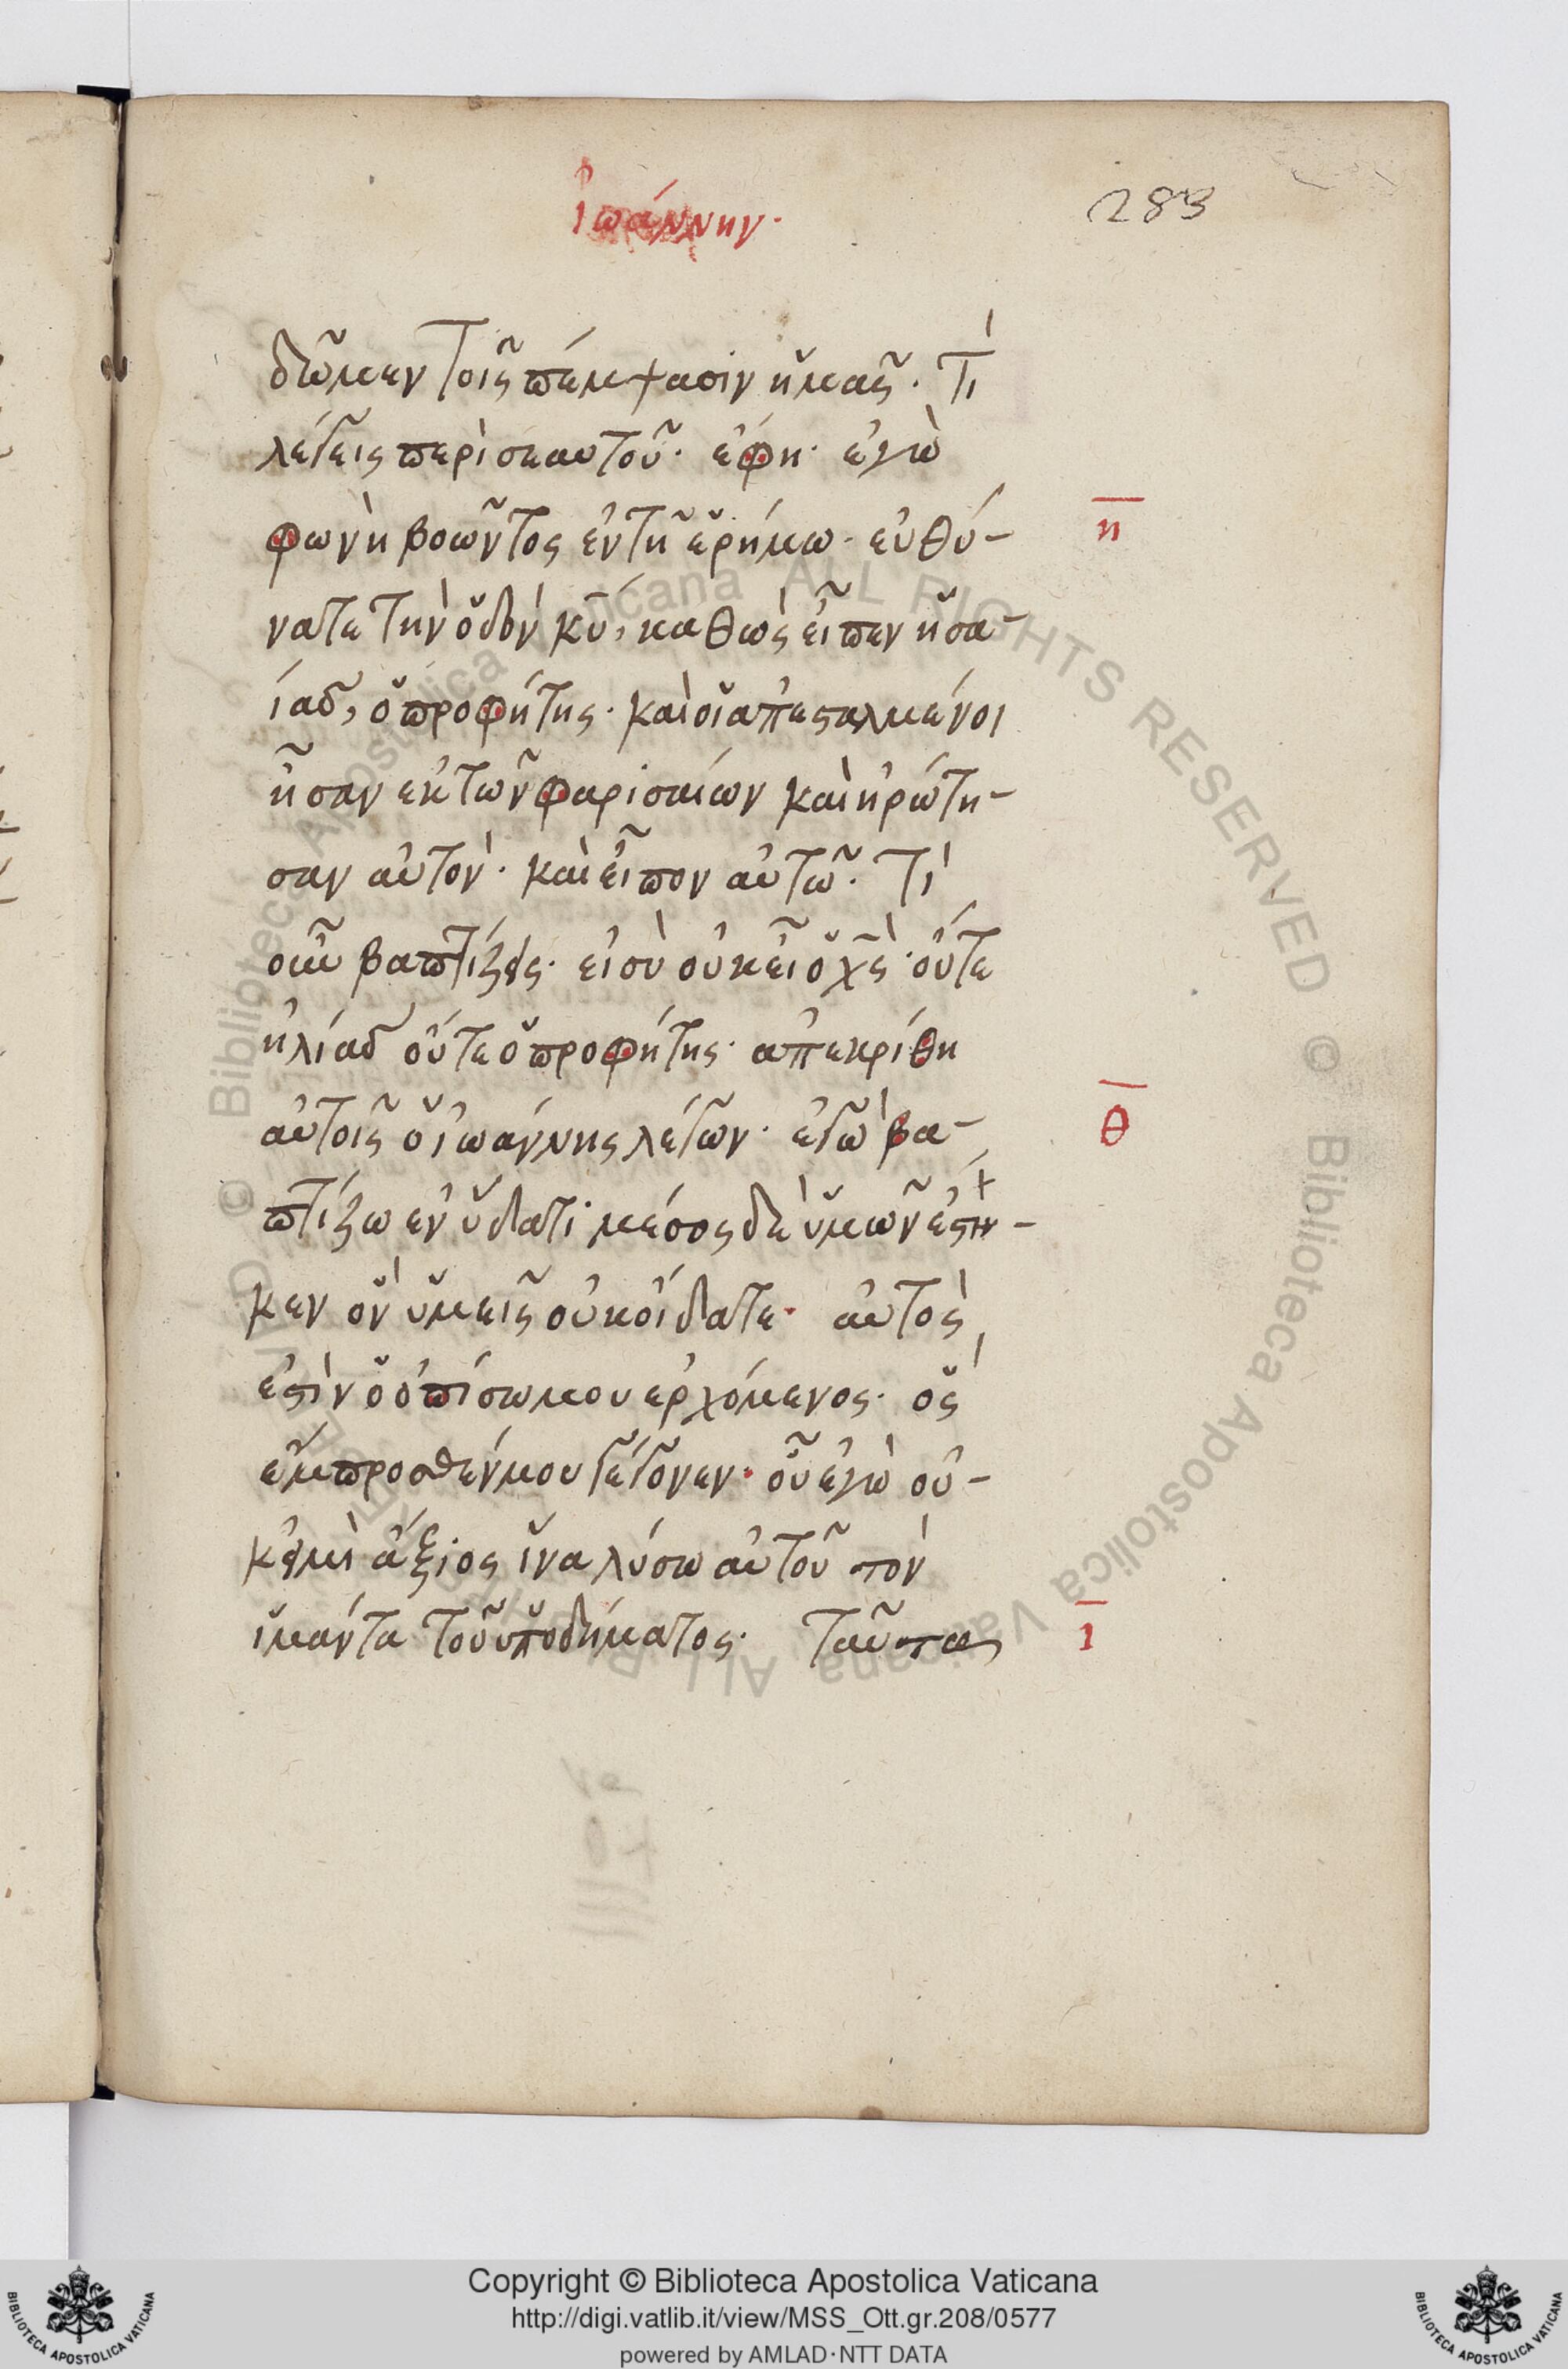 ἰωάννην·
283
δῶμεν τοῖς πέμψασιν ἡμᾶς· τί
λέγεις περὶ σεαυτοῦ· ἔφη· ἐγὼ
φωνὴ βοῶντος ἐν τῆ ἐρήμω· εὐθύ-
η
νατε τὴν ὁδὸν κ̅υ̅, καθὼς εἶπεν ἡσα-
ίας, ὁ προφήτης· καὶ οἱ ἀπεσταλμένοι
ἦσαν ἐκ τῶν φαρισαίων καὶ ἠρώτη-
σαν αὐτόν· καὶ εἶπον αὐτῶ· τί
οὖν βαπτίζεις· εἰ σὺ οὐκ εἶ ὁ χ̅ς̅· οὔτε
ἠλίας οὔτε ὁ προφήτης· ἀπεκρίθη
αὐτοῖς ὁ ἰωάννης λέγων· ἐγὼ βα-
θ
πτίζω ἐν ὕδατι· μέσος δὲ ὑμῶν ἕστη-
κεν ὃν ὑμεῖς οὐκ οἴδατε· αὐτός
ἐστὶν ὁ ὀπίσω μου ἐρχόμενος· ὃς
ἔμπροσθέν μου γέγονεν· οὗ ἐγὼ οὐ-
κ εἰμὶ ἄξιος ἵνα λύσω αὐτοῦ τὸν
ἱμάντα τοῦ ὑποδήματος· ταῦτα
ι
Copyright © Biblioteca Apostolica Vaticana
http://digi.vatlib.it/view/MSS_Ott.gr.208/0577
powered by AMLAD·NTT DATA
BIBLIOTECA APOSTOLICA VATICANA
BIBLIOTECA APOSTOLICA VATICANA